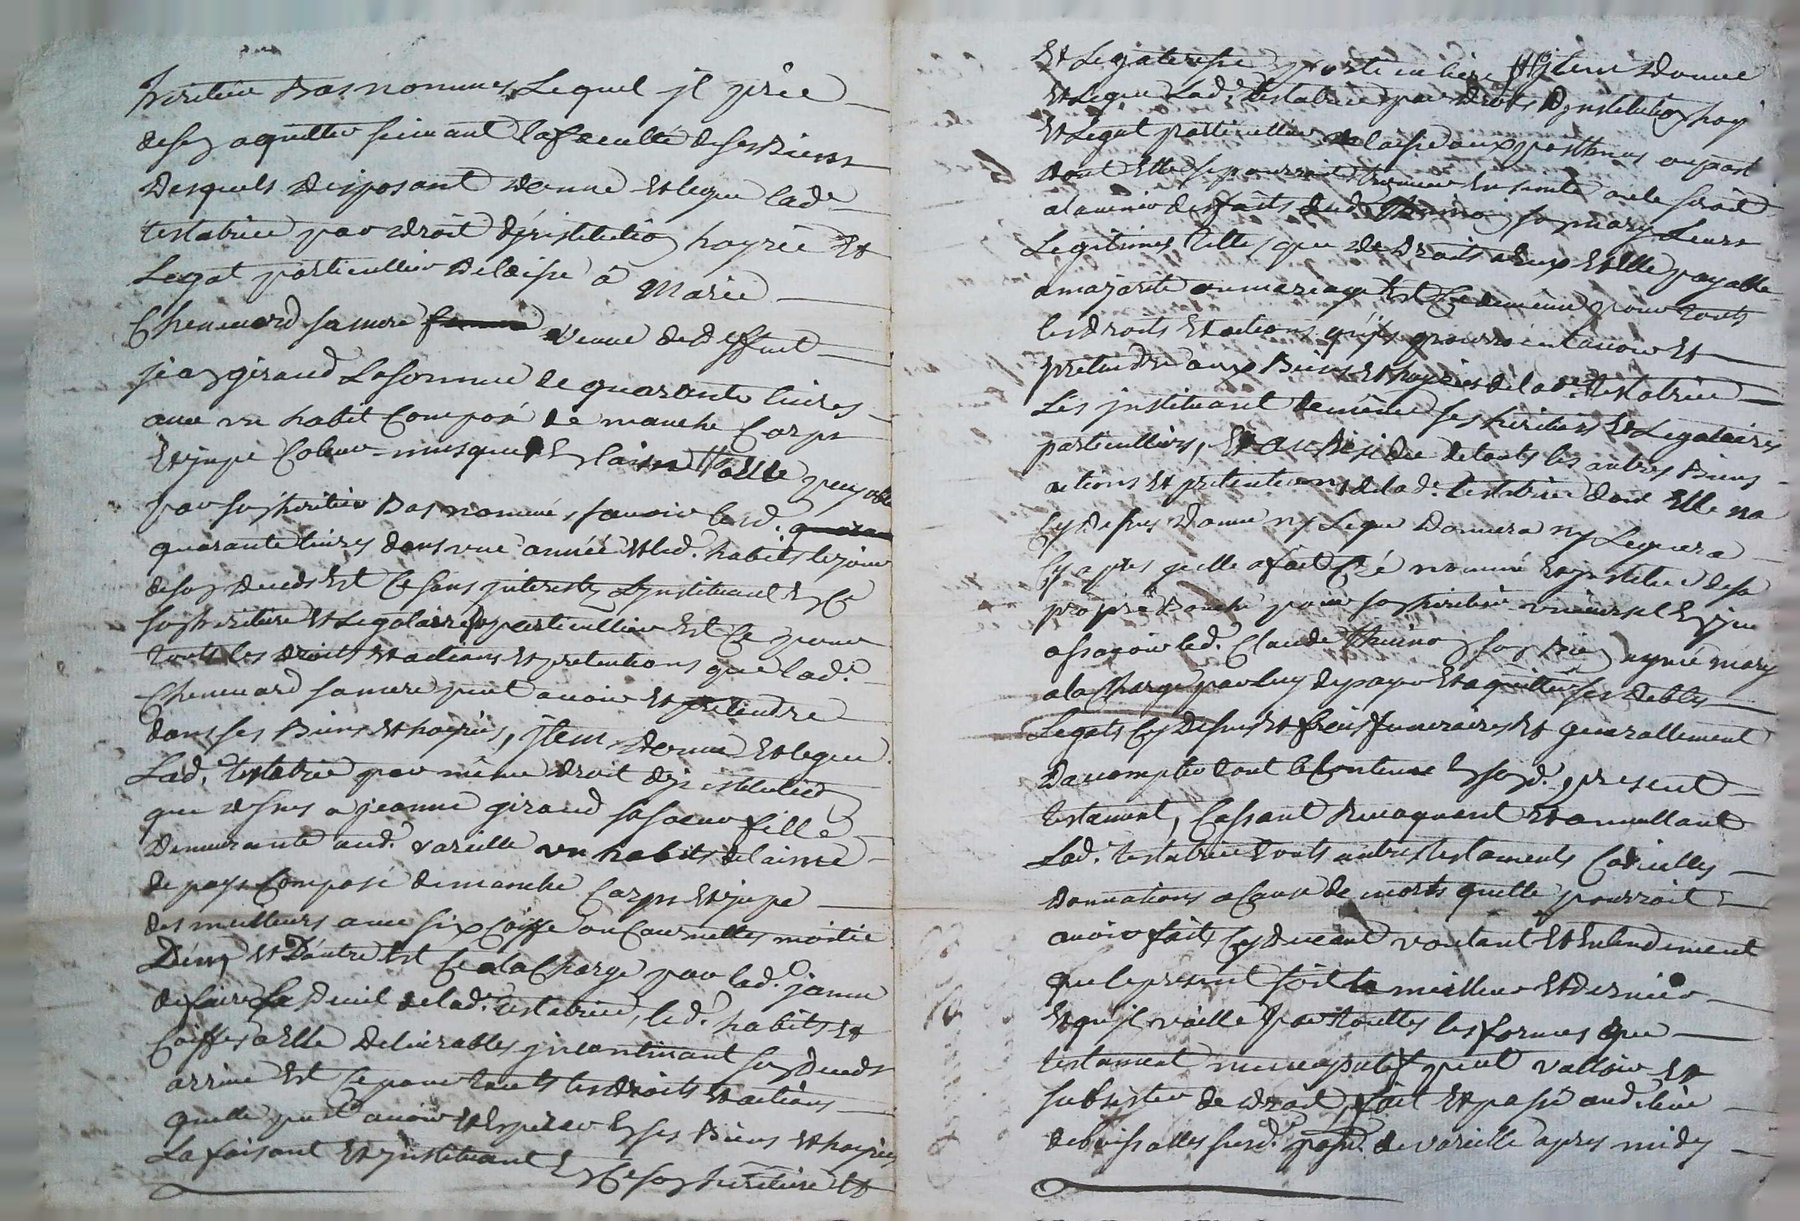 heritier Bas nommé, Lequel jl prie
desen aquitter suivant la faculté de ses Biens
Desquels Disposant Donne et legue lad.e
testatrice par droit djnstitution hoyrie et
Legat particullier delaisse à Marie
Chenevard sa mere femme veuve de deffunt
jean giraud La somme de quarante livres
avec un habit Composé de manche Corps
et jupe Coleur musque En laine payable
par son heritier Bas nommé, savoir les d.
quarante livres dans une année et led. habits le jour
de son deceds Et Ce sans jnterests Lynstituant En Ce
son heritiere et Legataire particulliere Et Ce pour
touts les droits et actions et pretentions que lad.e
Chenevard sa mere peut avoir et pretendre
dans ses Biens et hoyries, jtem Donne et legue
Lad.e testatrice par même droit djnstitution
que dessus a jeanne giraud sa sœur fille
Demeurante aud. vareille un habits de laine
de pays Composé de manche Corps et jupe
des meilleurs avec six Coiffe ou Cournettes moitie
D'un et D'autre Et Ce a la Charge par lad.e janne
de faire Le Deuil de lad.e testatrice, led. habits et
Coiffes a Elle Delivrables jncontinant son deceds
arrivé Et Ce pour touts les droits et actions
quelle peut avoir et Esperer En ses Biens et hoyries
La faisant et jnstituant En Ce son heritiere et
Et Legateresse particuliere jtem Donne
et legue Lad.e testatrice par droits Djnstitution hoyrie
et Legat particullier delaisse aux posthumes ou post
dont Elle se pourroit trouver Enceinte ou le seroit
a lavenir des faits dud. son mary Leurs
Legitimes telles que de Droits a Eux Et Elle payable
a majorité ou mariage Et Ce de même pour touts
les droits et actions quils pourroient avoir et
pretendre aux Biens et hoyries de lad.e testatrice
Les jnstituant de même ses heritiers et Legataires
particulliers, Et au Residue de touts les autres Biens
actions et pretentions de lad.e testatrice dont Elle na
Cy Dessus Donné ny Legué Donnera ny Leguera
Cy apres quelle a fait Créé nommé et jnstitué de sa
propre Bouche pour son heritier universel
assavoir led. Claude son Bien aymé mary
a la Charge par Luy de payer et aquitter ses debtes
Legats Cy Dessus et frais funeraires et generallement
Daccomplir tout le Contenu En sond. present
testament, Cassant Revoquant et annullant
Lad.e testatrice touts autres testaments Codicilles
Donnations a Cause de morts quelle pourroit
avoir faits Cy devant voulant et Entendement
que le present soit le meilleur et Dernier
et qu'jl vaille par touttes les formes que
testament nuncupatif peut valloir et
subsister de droit, fait et passé aud. lieu
de Boissalles sus d. de vareille apres midy